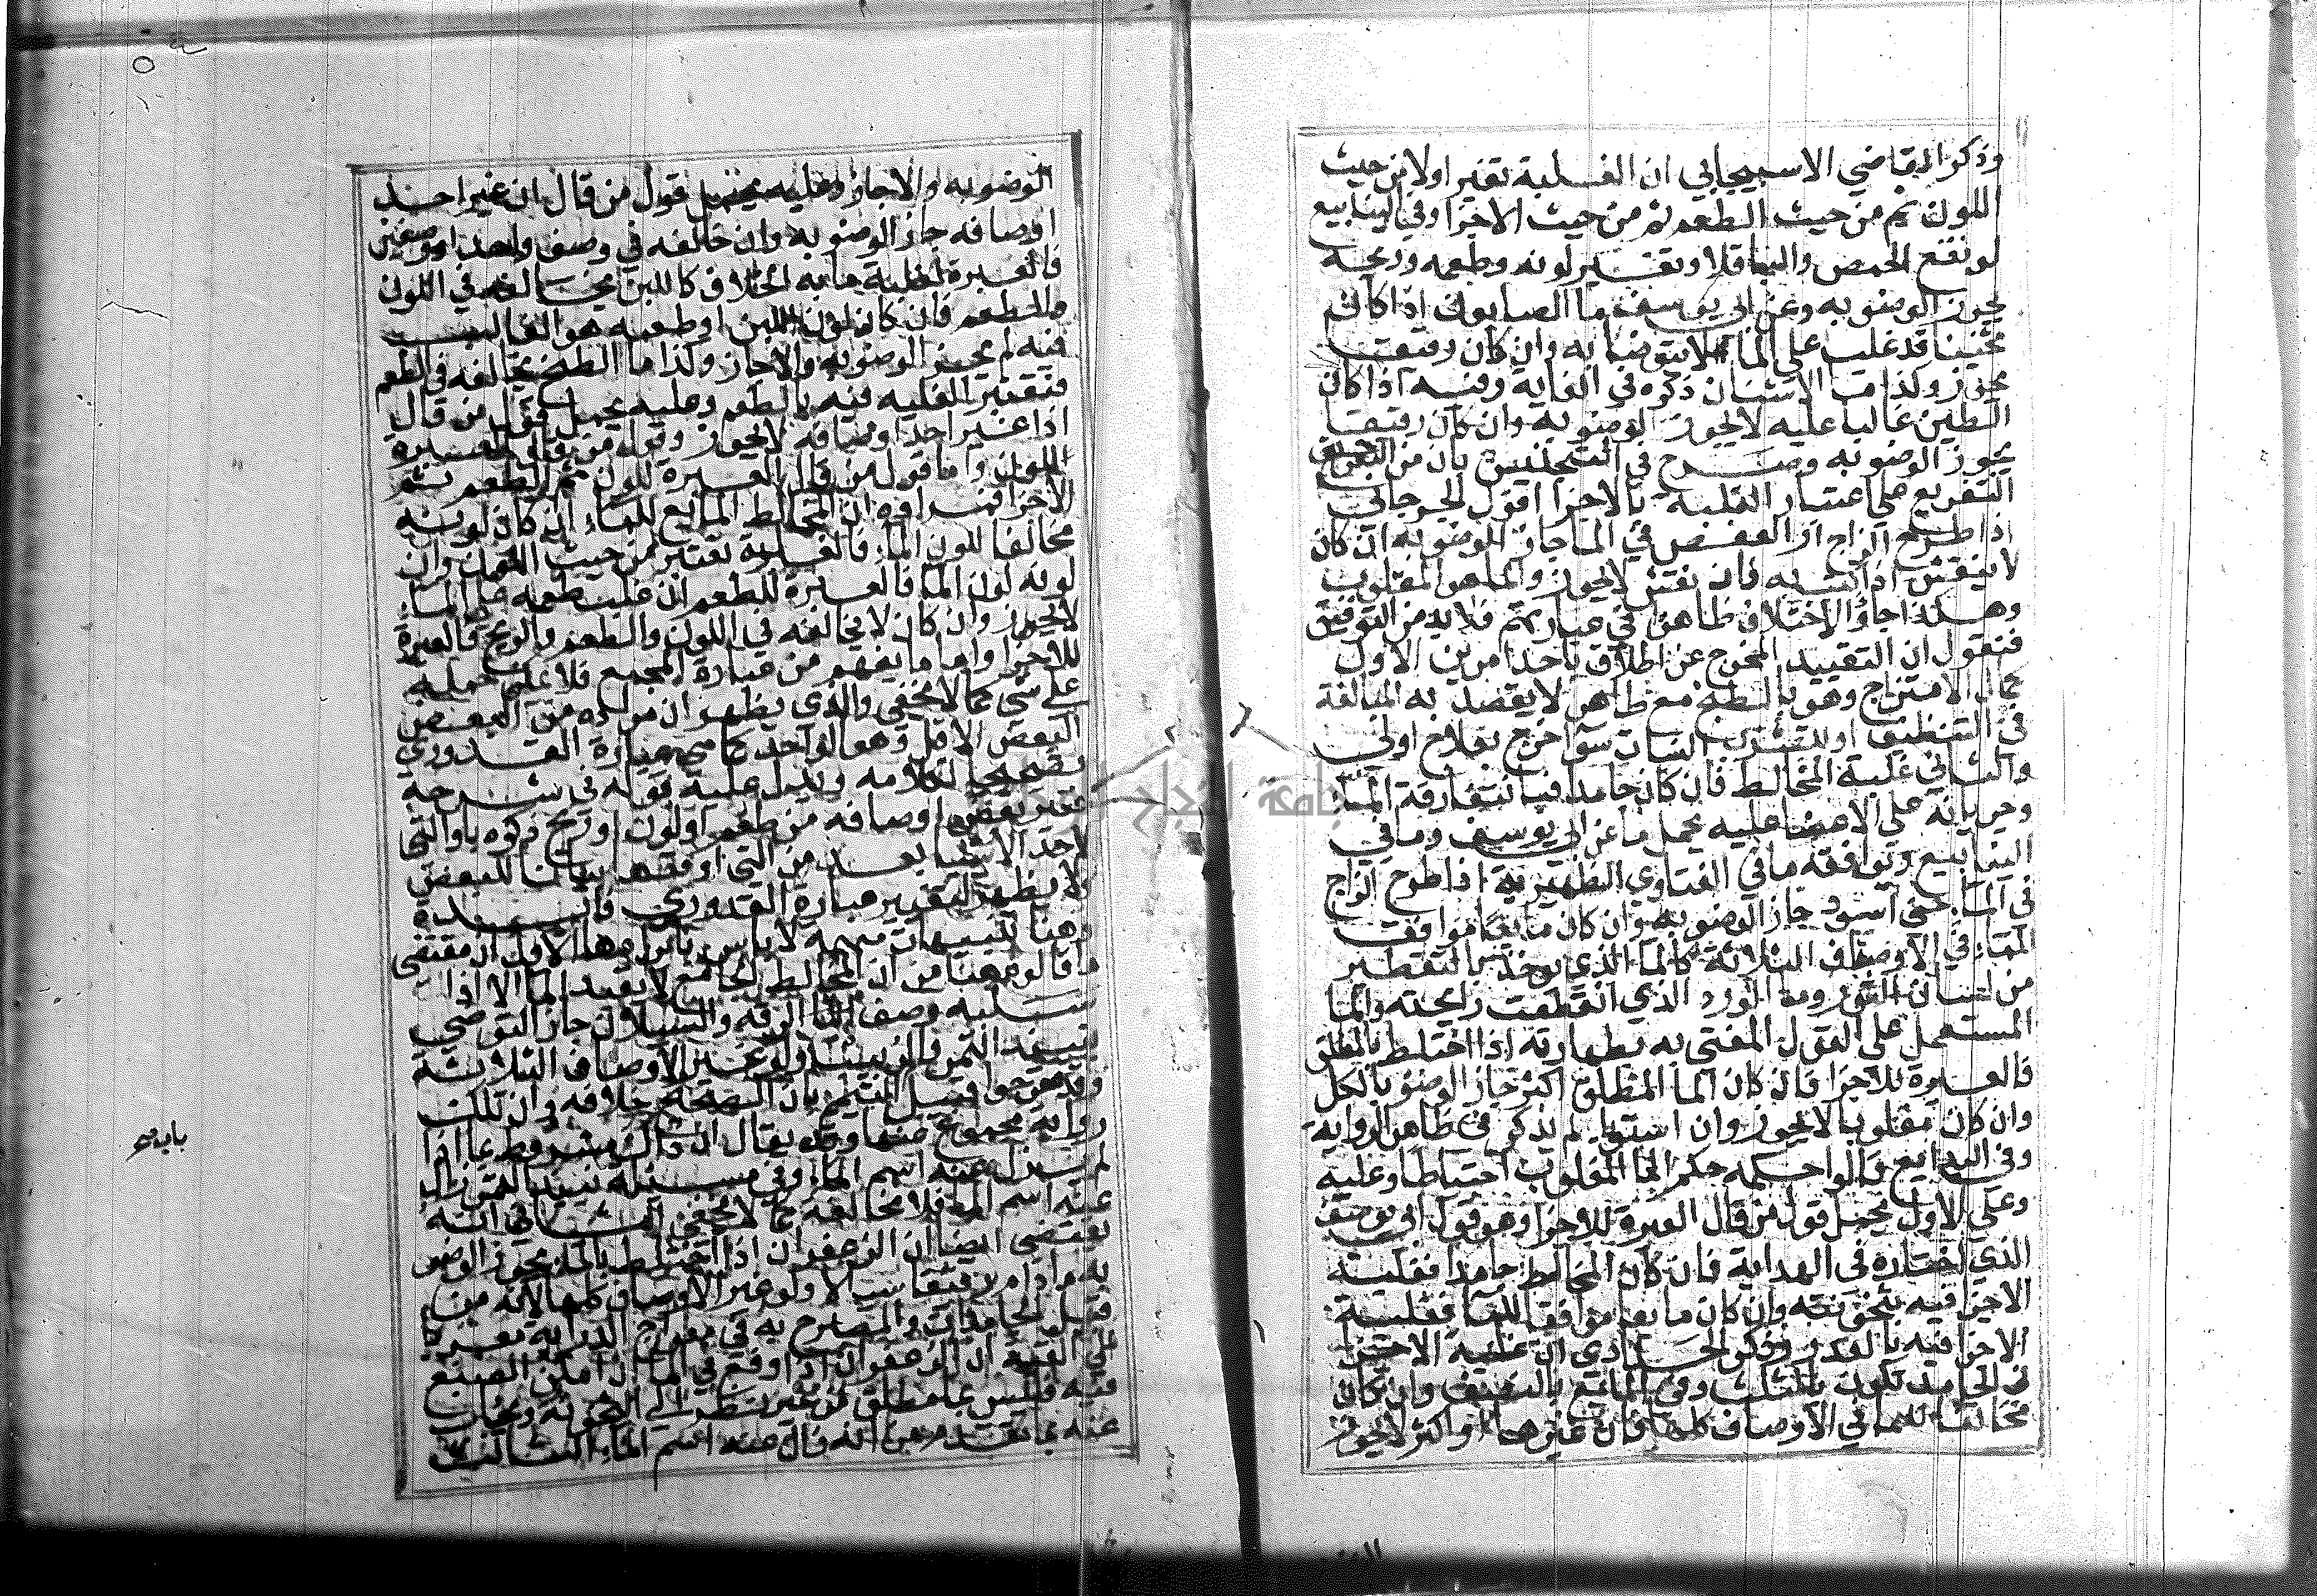 وذكر القاضي الاسبيجابي ان الغلبة تعتبر اولا من حيث
اللون ثم من حيث الطعم ثم من حيث الاجزا وفي الينابيع
لو نقع الحمص والباقلا وتغير لونه وطعمه وريحه
يجوز الوضو به وعن ابي يوسف ما الصابون اذا كان
ثخينا قد غلب علي الماء لا يتوضا به وان كان رقيقا
يجوز وكذا ما الاشنان ذكره في الغاية وفيه اذا كان
الطين غالبا عليه لا يجوز الوضو به وان كان رقيقا
يجوز الوضو به وصرح في التجنيس بان من
التفريع علي اعتبار الغلبة بالاجزا قول الجرجاني
اذا طرح الزاج او العفص في الما جاز الوضو به ان كان
لا ينقش اذا كتب به فان نقش لا يجوز والما هو المغلوب
وهكذا جاء الاختلاف ظاهرا في عبارتهم فلا بد من التوفيق
فنقول ان التقييد المخرج عن اطلاق باحد امرين الاول
كمال الامتزاج وهو بالطبخ مع طاهر لا يقصد به المبالغة
في التنظيف او بتشرب النبات سوا خرج بعلاج اولي
والثاني غلبة المخالط فان كان جامدا فبانتفا رقة الماء
وجريانه علي الاعضا عليه يحمل ما عن ابي يوسف وما في
الينابيع ويوافقه ما في الفتاوي الظهيرية اذا طرح الزاج
في الماء حتي اسود جاز الوضو به وان كان مايعا موافقا
للماء في الاوصاف الثلاثة كالما الذي يوخذ بالتقطير
من لسان الثور وما الورد الذي انقطعت رايحته والما
المستعمل علي القول المفتي به بطهارته اذا اختلط بالمطلق
فالعبرة للاجزا فان كان الما المطلق اكثر جاز الوضو بالكل
وان كان مغلوبا لا يجوز وان استويا لم يذكر في ظاهر الرواية
وفي البدايع قالوا حكمه حكم الما المغلوب احتياطا وعليه
وعلي الاول يحمل قول من قال العبرة للاجزا وهو قول ابي يوسف
الذي اختاره في الهداية فان كان المخالط جامدا فغلبة
الاجزا فيه بثخونته وان كان مايعا موافقا للما فغلبة
الاجزا فيه بالقدر وذكر الحدادي ان غلبة الاجزا
في الجامد تكون بالثلث وفي المايع بالنصف وان كان
مخالفا للما في الاوصاف كلها فان غيرها او اكثر لا يجوز
الوضو به والا جاز وعليه يحمل قول من قال ان غير احد
اوصافه جاز الوضو به وان خالفه في وصف واحد او وصفين
فالعبرة لغلبة ما به الخلاف كاللبن يخالفه في اللون
والطعم فان كان لون اللبن او طعمه هو الغالب
فيه لم يجز الوضو به والا جاز وكذا ما البطيخ يخالفه في الطعم
فتعتبر الغلبه فيه بالطعم وعليه يحمل قول من قال
اذا غير احد اوصافه لا يجوز وقول من قال العبرة
اللون واما قول من قال العبرة للون ثم الطعم ثم
الاجزا فمراده ان المخالط المايع للماء ان كان لونه
مخالفا للون الماء فالغلبة تعتبر من حيث اللون وان
لونه لون الما فالعبرة للطعم ان غلب طعمه علي الماء
لا يجوز وان كان لا يخالفه في اللون والطعم والريح فالعبرة
للاجزا واما ما يفهم من عبارة المجمع فلا يمكن حمله
علي شي كما لا يخفي والذي يظهر ان مراده من البعض
البعض الاقل وهو الواحد كما هي عبارة القدوري
تصحيحا لكلامه ويدل عليه قوله في شرحه
فغير بعض اوصافه من طعم اولون او ريح ذكره باو التي
لاحد الاشيا بعد من التي اوقعها بيانا للبعض
ولا يظهر لتغيير عبارة القدوري فايدة
وهنا تنبيهات مهمه لا باس بايرادها الاول ان مقتضي
ما قالوه هنا من ان المخالط الجامد لا يقيد الما الا اذا
سلبه وصف الرقه والسيلان جاز التوضي
بنبيذ التمر والزبيب ولو غير الاوصاف الثلاثة
وقد صرحوا قبيل التيمم بان الصحيح خلافه وان تلك
رواية مرجوع عنها وقد يقال ان ذلك مشروط بما اذا
لم يزل عنه اسم الماء وفي مسئلة نبيذ التمر زال
عنه اسم الما فلا مخالفة كما لا يخفي الثاني انه
يقتضي ايضا ان الزعفران اذا اختلط بالماء يجوز الوضو
به ما دام رقيقا سيالا ولو غير الاوصاف كلها لانه من
قبيل الجامدات والمصرح به في معراج الدراية معزيا
الي القنية ان الزعفران اذا وقع في الماء ان امكن الصبغ
فيه فليس بماء مطلق من غير نظر الي الثخونة ويجاب
عنه بما تقدم من انه زال عنه اسم الماء الثالث